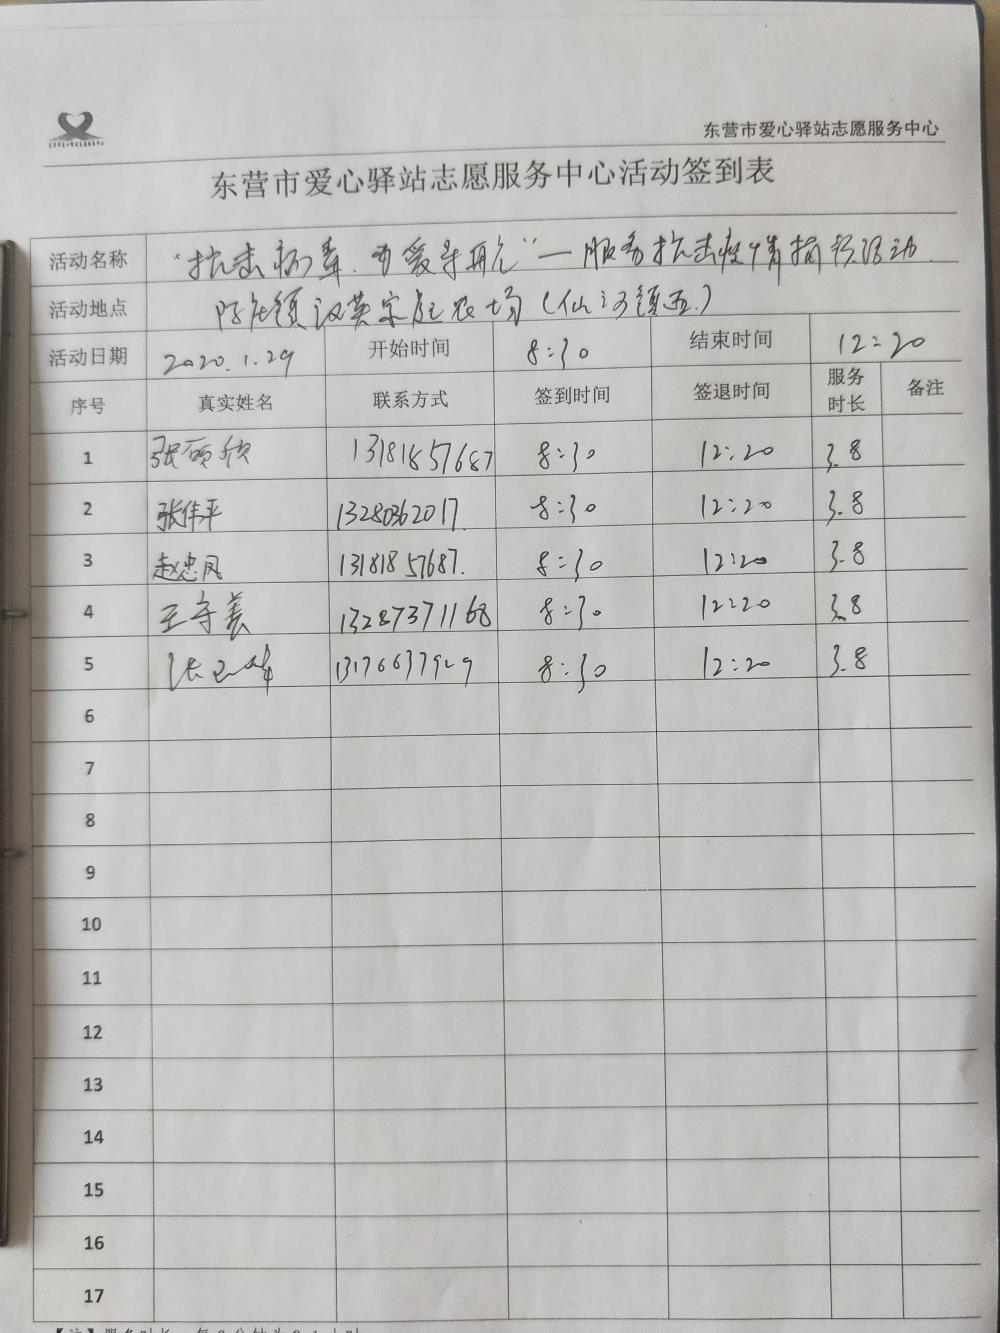 东营市爱心驿站志愿服务中心
东营市爱心驿站志愿服务中心活动签到表
活动名称 "抗击病毒.为爱导航"—服务抗击疫情捐款活动.
活动地点 陈庄镇汉英家庭农场(仙河镇.)
活动日期 2020.1.29 开始时间 8:30 结束时间 12:20
序号 真实姓名 联系方式 签到时间 签退时间 服务时长 备注
1 张硕颀 13181857687 8:30 12:20 3.8
2 张伟平 13280362017. 8:30 12:20 3.8
3 赵忠凤 13181857687. 8:30 12:20 3.8
4 王守美 13287371168 8:30 12:20 3.8
5 13176637929 8:30 12:20 3.8
6
7
8
9
10
11
12
13
14
15
16
17